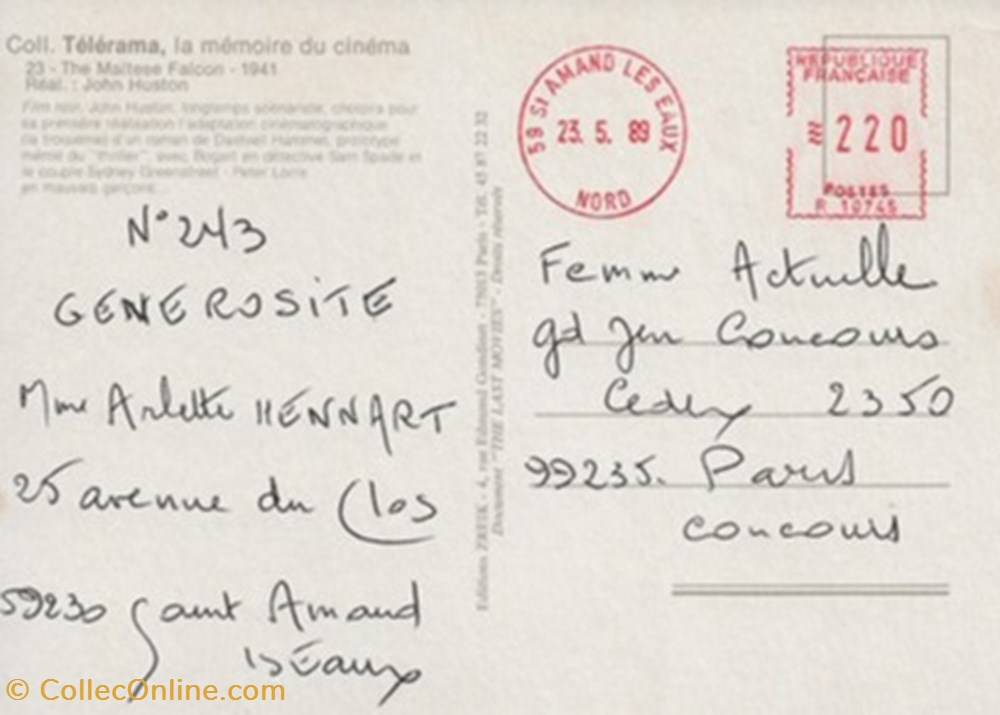 Coll. Télérama, la mémoire du cinéma
23 - The Maltese Falcon - 1941
Réal. : John Huston
Film noir. John Huston, longtemps scénariste, choisira pour
sa première réalisation l'adaptation cinématographique
(la troisième) d'un roman de Dashiell Hammet, prototype
même du "thriller", avec Bogart en détective Sam Spade et
le couple Sydney Greenstreet - Peter Lorre
en mauvais garçons...
N° 243
GENEROSITE
Mme Arlette HENNART
25 avenue du Clos
59230 Saint Amand
les Eaux
Editions ZREIK - 4, rue Edmond Gondinet - 75013 Paris - Tél. 45 87 22 32
Document "THE LAST MOVIES" - Droits réservés
59 St AMAND LES EAUX
23. 5. 89
NORD
REPUBLIQUE
FRANÇAISE
220
POSTES
R 10745
Femme Actuelle
gd Jeu Concours
Cedex 2350
99235. Paris
concours
© CollecOnline.com